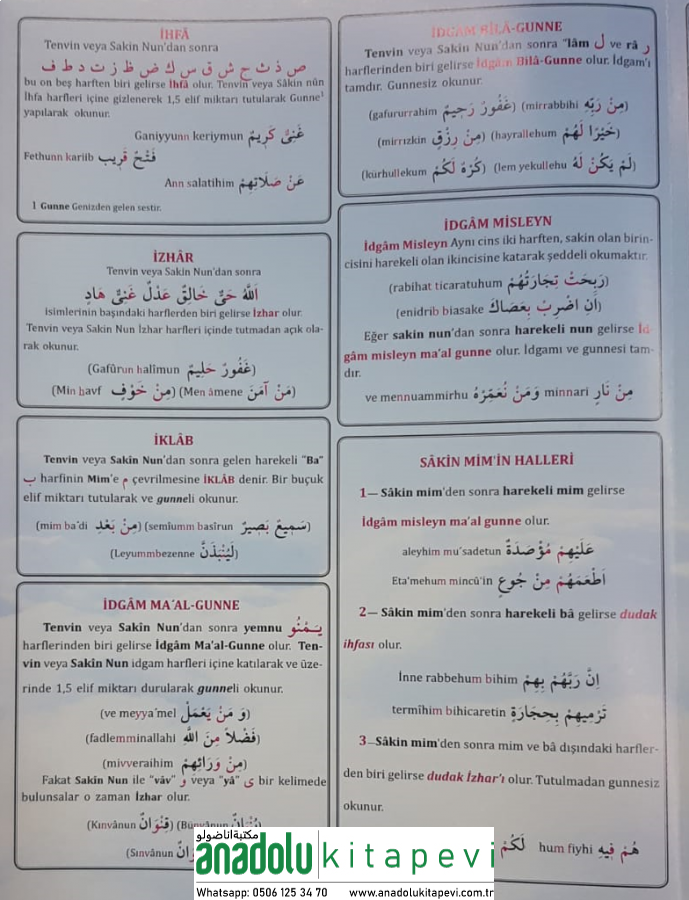 İHFÂ
Tenvin veya Sakin Nun'dan sonra
ص ذ ث ج ش ق س ك ض ظ ز ت د ط ف
bu on beş harften biri gelirse İhfâ olur. Tenvin veya Sâkin nûn
İhfa harfleri içine gizlenerek 1,5 elif miktarı tutularak Gunne¹
yapılarak okunur.
Ganiyyunn keriymun غَنِىٌّ كَرِيمٌ
Fethunn kariib فَتْحٌ قَرِيب
Ann salatihim عَنْ صَلَاتِهِمْ
1 Gunne Genizden gelen sestir.
İZHÂR
Tenvin veya Sakin Nun'dan sonra
اَللّٰهُ حَىٌّ خَالِقٌ عَدْلٌ غَنِىٌّ هَادٍ
isimlerinin başındaki harflerden biri gelirse İzhar olur.
Tenvin veya Sakin Nun İzhar harfleri içinde tutmadan açık ola-
rak okunur.
(Gafûrun halîmun غَفُورٌ حَلِيمٌ)
(Min havf مِنْ خَوْفٍ) (Men âmene مَنْ آمَنَ)
İKLÂB
Tenvin veya Sakîn Nun'dan sonra gelen harekeli "Ba"
ب harfinin Mim'e م çevrilmesine İKLÂB denir. Bir buçuk
elif miktarı tutularak ve gunneli okunur.
(mim ba'di مِنْ بَعْدِ) (semîumm basîrun سَمِيعٌ بَصِيرٌ)
(Leyummbezenne لَيُنْبَذَنَّ)
İDGÂM MA'AL-GUNNE
Tenvin veya Sakîn Nun'dan sonra yemnu يَمْنُو
harflerinden biri gelirse İdgâm Ma'al-Gunne olur. Ten-
vin veya Sakîn Nun idgam harfleri içine katılarak ve üze-
rinde 1,5 elif miktarı durularak gunneli okunur.
(ve meyya'mel وَ مَنْ يَعْمَلْ)
(fadlemminallahi فَضْلاً مِنَ اللّٰهِ)
(mivveraihim مِنْ وَرَائِهِمْ)
Fakat Sakîn Nun ile "vâv" و veya "yâ" ى bir kelimede
bulunsalar o zaman İzhar olur.
(Kınvânun قِنْوَانٌ) (Bünyânun
(Sınvânun
İDGAM BİLÂ-GUNNE
Tenvin veya Sakîn Nun'dan sonra "lâm ل ve râ ر
harflerinden biri gelirse İdgâm Bilâ-Gunne olur. İdgam'ı
tamdır. Gunnesiz okunur.
(gafururrahim غَفُورٌ رَحِيمٌ) (mirrabbihi مِنْ رَبِّهِ)
(mirrızkin مِنْ رِزْقٍ) (hayrallehum خَيْرًا لَهُمْ)
(kürhullekum كُرْهٌ لَكُمْ) (lem yekullehu لَمْ يَكُنْ لَهُ)
İDGÂM MİSLEYN
İdgâm Misleyn Aynı cins iki harften, sakin olan birin-
cisini harekeli olan ikincisine katarak şeddeli okumaktır.
(rabihat ticaratuhum رَبِحَتْ تِجَارَتُهُمْ)
(enidrib biasake اَنِ اضْرِبْ بِعَصَاكَ)
Eğer sakin nun'dan sonra harekeli nun gelirse İd-
gâm misleyn ma'al gunne olur. İdgamı ve gunnesi tam-
dır.
ve mennuammirhu وَمَنْ نُعَمِّرْهُ minnari مِنْ نَارٍ
SÂKİN MİM'İN HALLERİ
1— Sâkin mim'den sonra harekeli mim gelirse
İdgâm misleyn ma'al gunne olur.
aleyhim mu'sadetun عَلَيْهِمْ مُؤْصَدَةٌ
Eta'mehum mincû'in اَطْعَمَهُمْ مِنْ جُوعٍ
2— Sâkin mim'den sonra harekeli bâ gelirse dudak
ihfası olur.
İnne rabbehum bihim اِنَّ رَبَّهُمْ بِهِمْ
termîhim bihicaretin تَرْمِيهِمْ بِحِجَارَةٍ
3—Sâkin mim'den sonra mim ve bâ dışındaki harfler-
den biri gelirse dudak İzhar'ı olur. Tutulmadan gunnesiz
okunur.
لَكُمْ hum fiyhi هُمْ فِيهِ
مكتبة اناضولو
anadolu kitapevi
Whatsapp: 0506 125 34 70 www.anadolukitapevi.com.tr